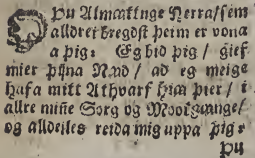 Þu Almattuge Herra/ sem
alldrei bregdst þeim er vona
a þig: Eg bid þig/ gief
mier þijna Naad/ ad eg meige
hafa mitt Athvarf hia þier/ i
allre miñe Sorg og Mootgange/
og alldeiles reida mig uppa þig:
Þu